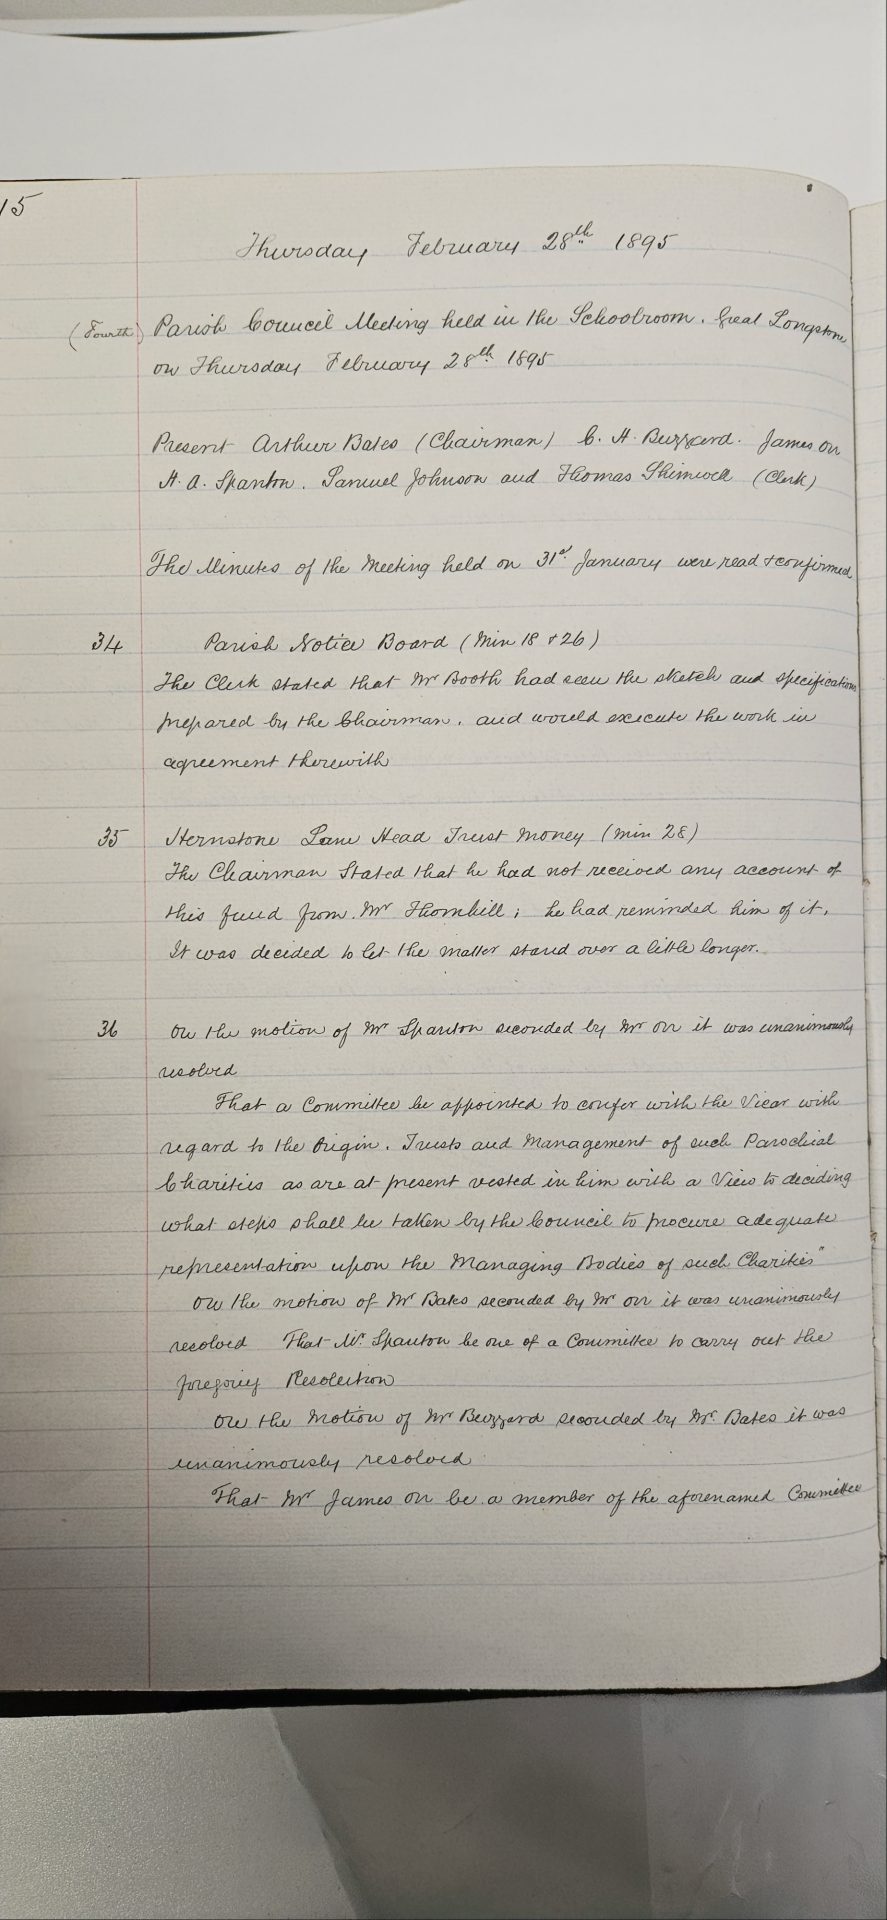 15
Thursday February 28th 1895
(Fourth) Parish Council Meeting held in the Schoolroom. Great Longstone
on Thursday February 28th 1895
Present Arthur Bates (Chairman) C. H. Buzzard. James Orr
H. A. Spanton. Samuel Johnson and Thomas Shimwell (Clerk)
The Minutes of the Meeting held on 31st January were read & confirmed
34 Parish Notice Board (Min 18 & 26)
The Clerk stated that Mr Booth had seen the sketch and specifications
prepared by the Chairman, and would execute the work in
agreement therewith
35 Hernstone Lane Head Trust Money (Min 28)
The Chairman Stated that he had not received any account of
this fund from Mr Thornhill; he had reminded him of it.
It was decided to let the matter stand over a little longer.
36 On the motion of Mr Spanton seconded by Mr Orr it was unanimously
resolved
That a Committee be appointed to confer with the Vicar with
regard to the Origin. Trusts and Management of such Parochial
Charities as are at present vested in him with a View to deciding
what steps shall be taken by the Council to procure adequate
representation upon the Managing Bodies of such Charities"
On the motion of Mr Bates seconded by Mr Orr it was unanimously
resolved That Mr. Spanton be one of a Committee to carry out the
foregoing Resolution
On the Motion of Mr Buzzard seconded by Mr. Bates it was
unanimously resolved
That Mr James Orr be a member of the aforenamed Committee